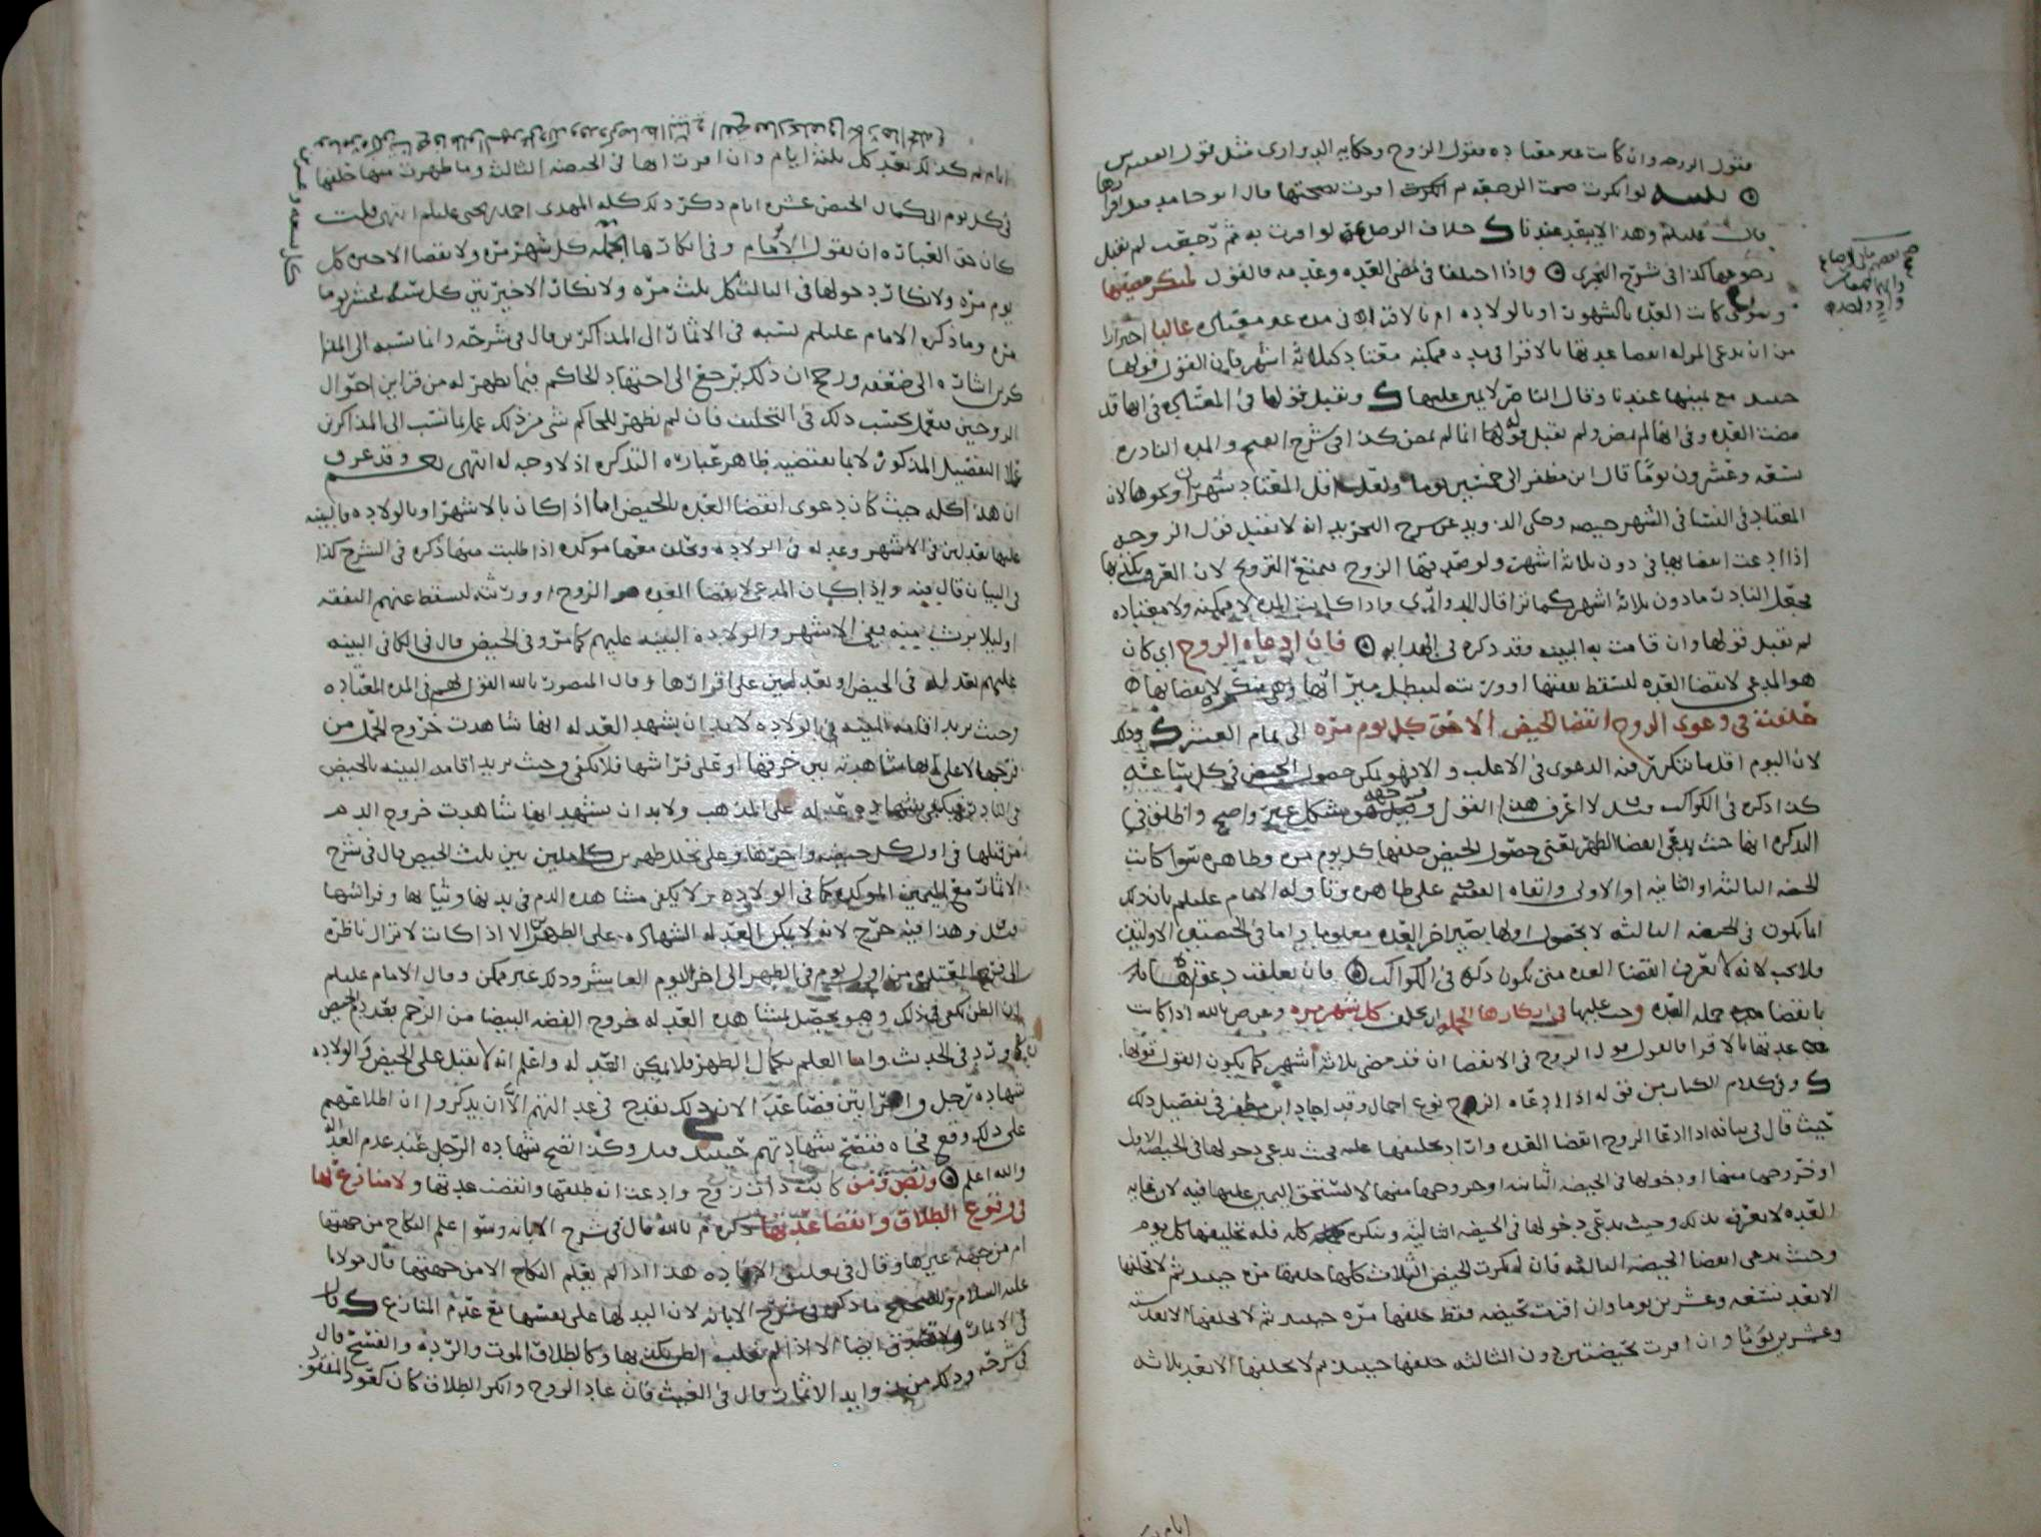 فقول الزوجه وان كانت غير معتاده فقول الزوج وحكايه الدوارى مثل قول الفقيه س
لو انكرت صحت الرجعه ثم اقرت بصحتها قال ابو حامد قبل اقرارها
قال عليلم وهذا لا يبعد عندنا ك خلاف الرضاع لو اقرت به ثم رجعت لم يقبل
رجوعها كذا فى شرح البحرى واذا اختلفا فى مضى العده وعدمه فالقول لمنكر مضيها
وسوى كانت العده بالشهور او بالولاده ام بالاقرا فى مده غير معتاده غالبا احترازا
من ان تدعى المراه انقضا عدتها بالاقرا فى مده ممكنه معتاده كثلاثه اشهر فان القول قولها
حينئذ مع يمينها عندنا وقال الناصر لا يمين عليها ك ويقبل قولها فى المعتاده فى انها قد
مضت العده وفى انها لم تمض ولم يقبل قوله انها لم تمض كذا فى شرح الفتح والمده النادره
تسعه وعشرون يوما قال ابن مظفر الى خمسين يوما ولعل اقل المعتاد شهران ونحوهما لان
المعتاد فى النسا فى الشهر حيضه وحكى الدويد عن شرح التجريد انه لا تقبل قول الزوجه
اذا ادعت انقضاها فى دون ثلاثه اشهر ولو صدقها الزوج يمتنع التزويج لان العرف يكذبها
فجعل النادر ما دون ثلاثه اشهر كما ترا قال الدوارى واذا كانت المده لا ممكنه ولا معتاده
لم تقبل قولها وان قامت به البينه وقد ذكره فى الهدايه فان ادعاه الزوج اى كان
هو المدعى لانقضا العده لتسقط نفقتها او ورثته ليبطل ميراثها وهى منكره لانقضايها
حلفت فى دعوى الزوج انقضا الحيض الاخر كل يوم مره الى تمام العشر ك وذلك
لان اليوم اقل ما تتكرر فيه الدعوى فى الاغلب والا فهو يمكن حصول الحيض فى كل ساعه
كذا ذكره فى الكواكب وقيل لا اعرف هذا القول وتوجيهه مشكل غير واضح واطلق فى
التذكره انها حيث يدعى انقضا الطهر يعنى حصول الحيض حلفها كل يوم مره وظاهره سوا كانت
الحيضه الثالثه او الثانيه او الاولى وابقاه الفقيه على ظاهره وتاوله الامام عليلم بان ذلك
انما يكون فى الحيضه الثالثه لا بحصول اولها يصير اخر العده معلوما واما فى الحيضتين الاولتين
فلا يجب لانه لا يعرف انقضا العده متى تكون ذكره فى الكواكب فان تعلقت دعوى
بانقضا جمله العده وجب عليها فى انكارها الجمله ان تحلف كل شهر مره وعن ص بالله اذا كانت
عدتها بالاقرا فالقول قول الزوج فى الانقضا ان قد مضى ثلاثه اشهر كما يكون القول قولها
ك وفى كلام الكتاب من قوله اذا ادعاه الزوج نوع اجمال وقد اجاد ابن مظفر فى تفصيل ذلك
حيث قال فى بيانه اذا ادعا الزوج انقضا العده واراد تحليفها عليه فحيث يدعى دخولها فى الحيضه الاولى
او خروجها منها او دخولها فى الحيضه الثانيه او خروجها منها لا تستحق اليمين عليها فيه لان غايه
العده لا يعرف بذلك وحيث يدعى دخولها فى الحيضه الثالثه وتنكره كله فله تحليفها كل يوم
وحيث يدعى انقضا الحيضه الثالثه فان انكرت الحيض الثلاث كلها حلفها مره حينئذ ثم لا تحلفها
الا بعد تسعه وعشرين يوما وان اقرت بحيضه فقط حلفها مره حينئذ ثم لا يحلفها الا بعد سته
وعشرين يوما وان اقرت بحيضتين دون الثالثه حلفها حينئذ ثم لا يحلفها الا بعد ثلاثه
ايام
ايام ثم كذلك بعد كل ثلثه ايام وان اقرت انها فى الحيضه الثالثه وما طهرت منها حلفها
فى كل يوم الى كمال الحيض عشره ايام ذكر ذلك كله المهدى احمد بن يحيى عليلم انتهى قلت
كان حق العباره ان يقول الامام وفى انكارها الجمله كل شهر مره ولانقضا الاخير كل
يوم مره ولانكار دخولها فى الثالث كل ثلث مره ولانكار الاخيرتين كل سته وعشرين يوما
مره وما ذكره الامام عليلم نسبه فى الاثمار الى المذاكرين قال فى شرحه وانما نسبه الى المذا
كرين اشاره الى ضعفه ورجح ان ذلك يرجع الى اجتهاد الحاكم فيما يظهر له من قراين احوال
الزوجين فيعمل بحسب ذلك فى التحليف فان لم يظهر للحاكم شى من ذلك عمل بما نسب الى المذاكرين
من التفصيل المذكور لا بما يقتضيه ظاهر عباره التذكره اذ لا وجه له انتهى نعم وقد عرف
ان هذا كله حيث كان دعوى انقضا العده بالحيض اما اذا كان بالاشهر او بالولاده فالبينه
عليها بعدلين فى الاشهر وعدله فى الولاده وتحلف معها موكده اذا طلبت منها ذكره فى الشرح كذا
فى البيان قال فيه واذا كان المدعى لانقضا العده هو الزوج او ورثته لتسقط عنهم النفقه
او ليلا ترث منه ففى الاشهر والولاده البينه عليهم كما مر وفى الحيض قال فى الكافى البينه
عليهم بعدله فى الحيض او بعدلين على اقرارها وقال المنصور بالله القول لهم فى المده المعتاده
وحيث يريد اقامه البينه فى الولاده لا بد ان يشهد العدله انها شاهدت خروج الحمل من
فرجها لا على انها شاهدته بين خرقها او على فراشها فلا يكفى وحيث يريد اقامه البينه بالحيض
فى النادر فيكفى شهاده عدله على المذهب ولا بد ان تشهد انها شاهدت خروج الدم
من قبلها فى اول كل حيضه واخرها وعلى تخلل طهرين كاملين بين ثلث الحيض قال فى شرح
الاثمار مع اليمين الموكده كما فى الولاده ولا يكفى مشاهده الدم فى بدنها وثيابها وفراشها
قيل وهذا فيه حرج لانه لا يمكن العدله الشهاده على الطهر الا اذا كانت لا تزال ناظره
الى فرج المعتده من اول يوم فى الطهر الى اخر اليوم العاشر وذلك غير ممكن وقال الامام عليلم
ان الظن يكفى فى ذلك وهو يحصل بمشاهده العدله خروج القصه البيضا من الرحم بعد دم الحيض
كما ورد فى الحديث واما العلم بكمال الطهر فلا يمكن العدله واعلم انه لا يقبل على الحيض والولاده
شهاده رجل وامراتين فصاعدا لان ذلك يقدح فى عدالتهم الا ان يذكروا ان اطلاعهم
على ذلك وقع فجاه فتصح شهادتهم حينئذ قيل وكذا تصح شهاده الرجل عند عدم العدله
والله اعلم وتصدق من كانت ذات زوج وادعت انه طلقها وانقضت عدتها ولا منازع لها
فى وقوع الطلاق وانقضا عدتها ذكره م بالله قال فى شرح الابانه وسوا علم النكاح من جهتها
ام من جهه غيرها وقال فى تعليق الافاده هذا اذا لم يعلم النكاح الا من جهتها قال مولانا
عليه السلام والصحيح ما ذكره فى شرح الابانه لان اليد لها على نفسها مع عدم المنازع ك قال
فى الاثمار ولا تصدق ايضا الا اذا لم يغلب الظن بكذبها وكالطلاق الموت والرده والفسخ قال
فى شرحه وذلك من زوايد الاثمار قال فى الغيث فان عاد الزوج وانكر الطلاق كان كعود المفقود